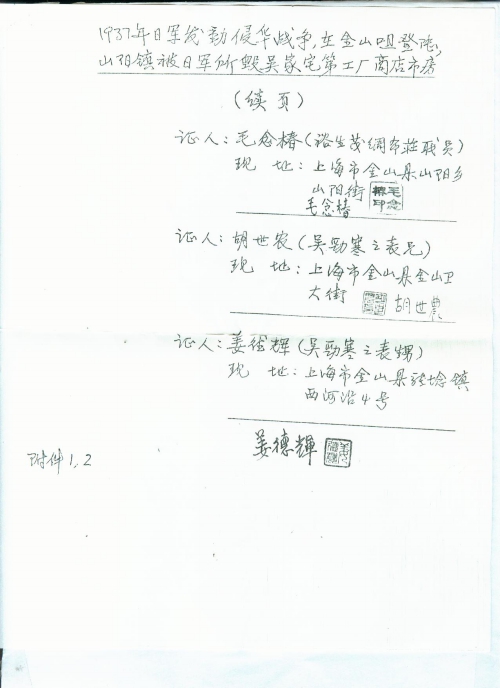 1937年日军发动侵华战争,在金山咀登陆,
山阳镇被日军所毁吴家宅第工厂商店市房
(续页)
证人:毛念椿(裕生茂绸布莊职员)
现 地:上海市金山县山阳乡
山阳街
毛念椿
证人:胡世农(吴勁寒之表兄)
现 地:上海市金山县金山卫
大街
胡世農
证人:姜德辉(吴勁寒之表甥)
现 地:上海市金山县张埝镇
西河沿4号
姜德輝
附件1,2